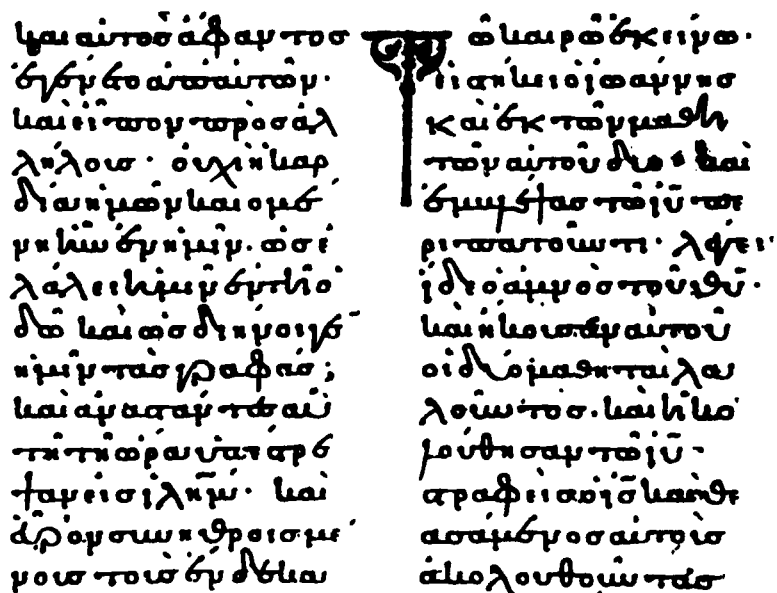 και αυτος άφαντος
εγένετο απο αυτῶν·
και εἶπον προς αλ
λήλους· ουχι η καρ
δία ημῶν καιομέ
νη ῆν εν ημῖν. ως ε
λάλει ημῖν εν τη ο
δῶ και ως διήνοιγε
ημῖν τας γραφάς;
και αναστάντες αυ
τῆ τῆ ώρα υπέστρε
ψαν εις ιλημ· και
εὗρον συνηθροισμέ
νους τους ένδεκα
Τῶ καιρῶ εκείνω·
εἱστήκει ο ιωάννης
και εκ τῶν μαθη
τῶν αυτοῦ δύο· και
εμβλέψας τῶ ιυ πε
ριπατοῦντι· λέγει·
ίδε ο αμνος τοῦ θυ·
και ήκουσαν αυτοῦ
οι δύο μαθηται λα
λοῦντος. και ηκο
λούθησαν τῶ ιυ·
στραφεις ο ις και θε
ασάμενος αυτους
ακολουθοῦντας